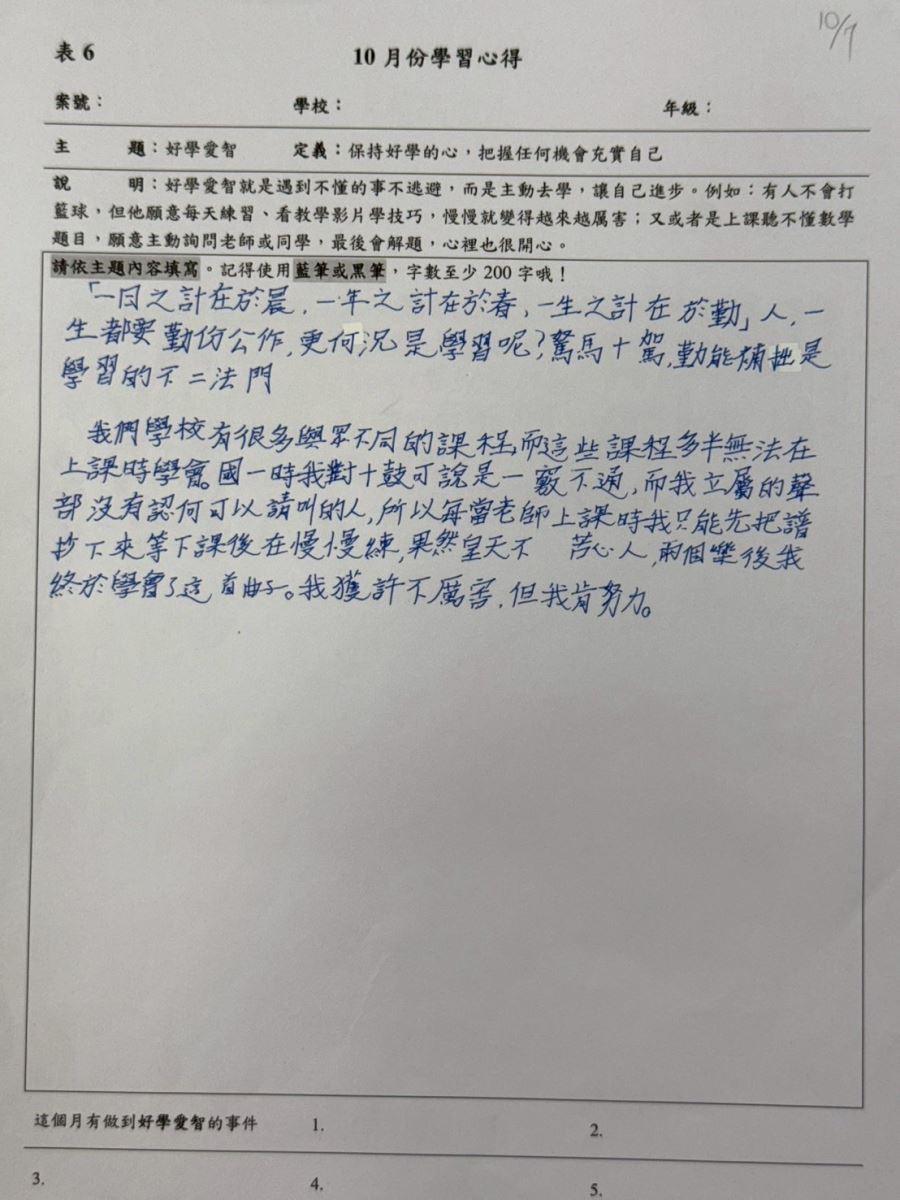 10/7
表 6 10 月份學習心得
案號： 學校： 年級：
主 題：好學愛智 定義：保持好學的心，把握任何機會充實自己
說 明：好學愛智就是遇到不懂的事不逃避，而是主動去學，讓自己進步。例如：有人不會打
籃球，但他願意每天練習、看教學影片學技巧，慢慢就變得越來越厲害；又或者是上課聽不懂數學
題目，願意主動詢問老師或同學，最後會解題，心裡也很開心。
請依主題內容填寫。記得使用藍筆或黑筆，字數至少 200 字哦！
「一日之計在於晨，一年之計在於春，一生之計在於勤」人，一
生都要勤份公作，更何況是學習呢？駑馬十駕，勤能補拙是
學習的不二法門
我們學校有很多與眾不同的課程，而這些課程多半無法在
上課時學會。國一時我對十鼓可說是一竅不通，而我立屬的聲
部沒有認何可以請叫的人，所以每當老師上課時我只能先把譜
抄下來等下課後在慢慢練，果然皇天不 苦心人，兩個樂後我
終於學會了這首曲子。我獲許不厲害，但我肯努力。
這個月有做到好學愛智的事件 1. 2.
3. 4. 5.